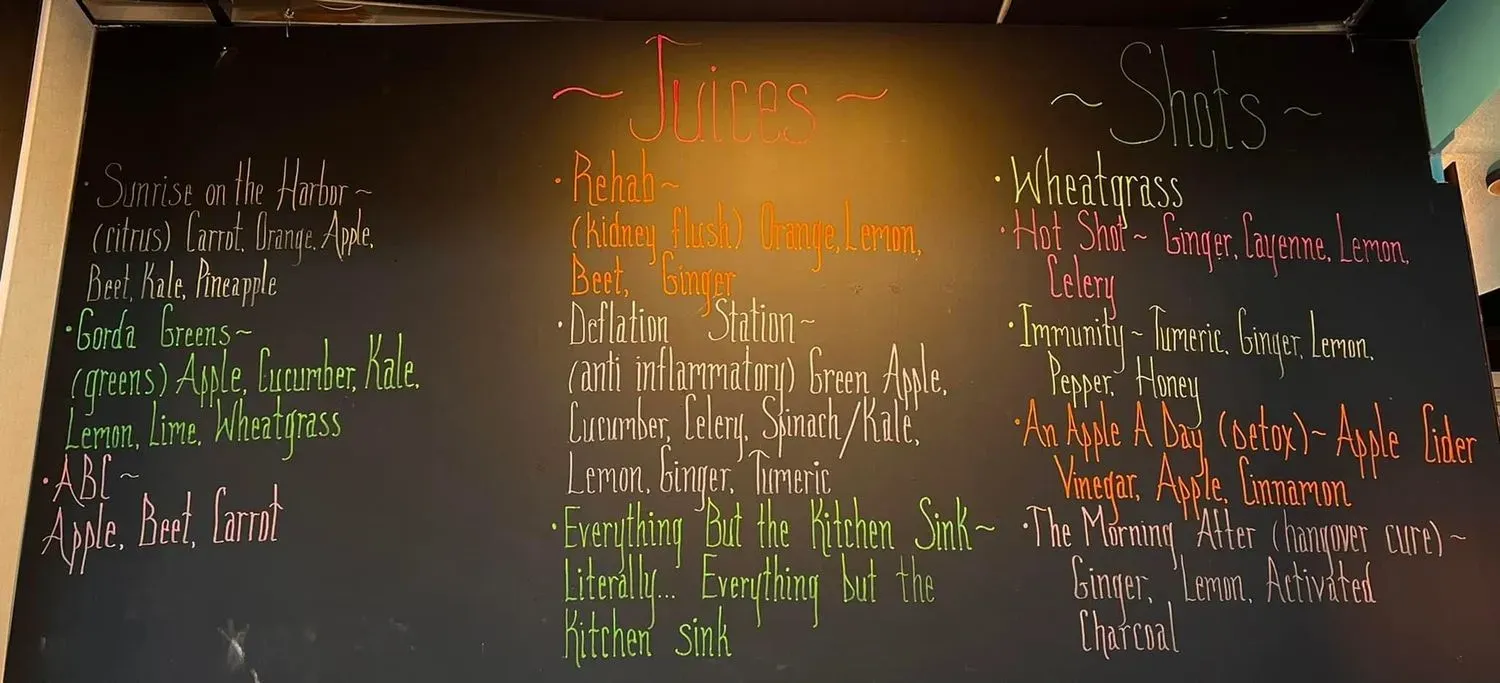 ~ Juices ~
· Sunrise on the Harbor ~
(citrus) Carrot, Orange, Apple,
Beet, Kale, Pineapple
· Gorda Greens ~
(greens) Apple, Cucumber, Kale,
Lemon, Lime, Wheatgrass
· ABC ~
Apple, Beet, Carrot
· Rehab ~
(kidney flush) Orange, Lemon,
Beet, Ginger
· Deflation Station ~
(anti inflammatory) Green Apple,
Cucumber, Celery, Spinach/Kale,
Lemon, Ginger, Tumeric
· Everything But the Kitchen Sink ~
Literally... Everything but the
Kitchen sink
~ Shots ~
· Wheatgrass
· Hot Shot ~ Ginger, Cayenne, Lemon,
Celery
· Immunity ~ Tumeric, Ginger, Lemon,
Pepper, Honey
· An Apple A Day (Detox) ~ Apple Cider
Vinegar, Apple, Cinnamon
· The Morning After (hangover cure) ~
Ginger, Lemon, Activated
Charcoal